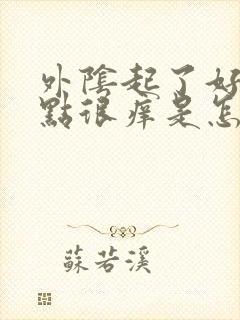 外陰起了好
點很癢是怎
蘇若溪